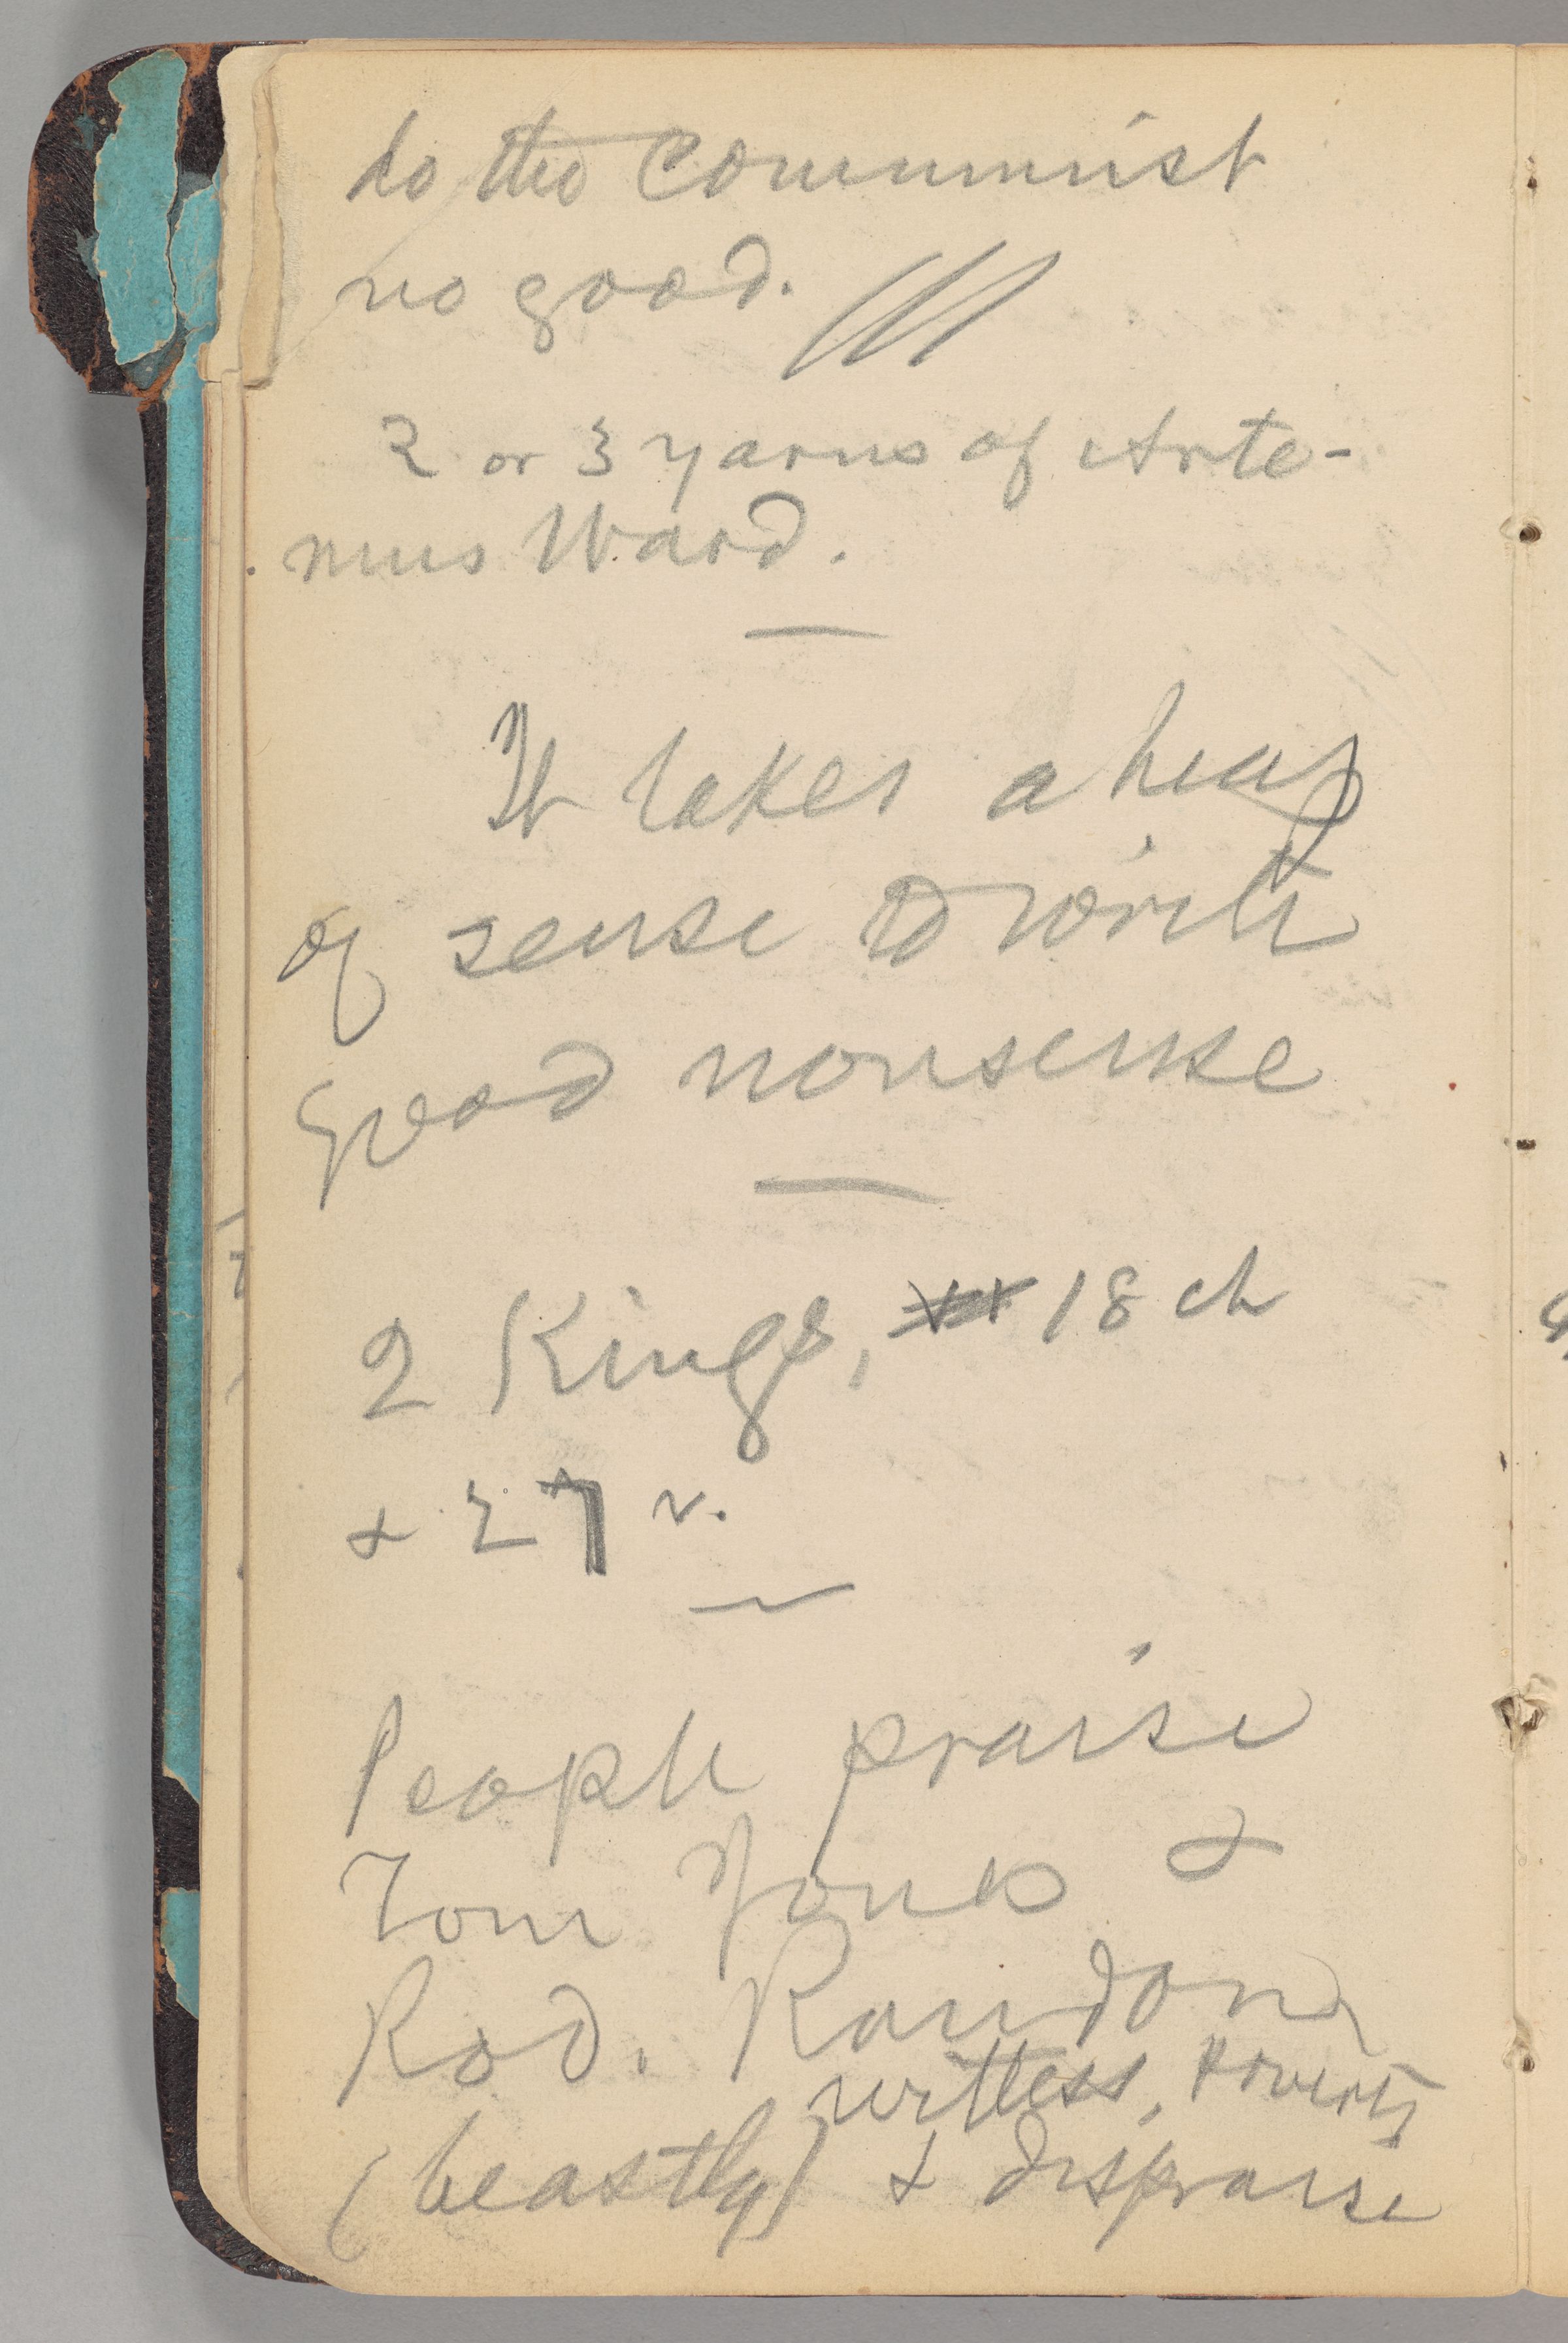 do the Communist
no good.
2 or 3 yarns of Arte-
mus Ward.
It takes a heap
of sense to write
good nonsense
2 Kings, 18 ch
& 27 v.
People praise
Tom Jones &
Rod. Random
witless, Poverty
(beastly) & dispraise